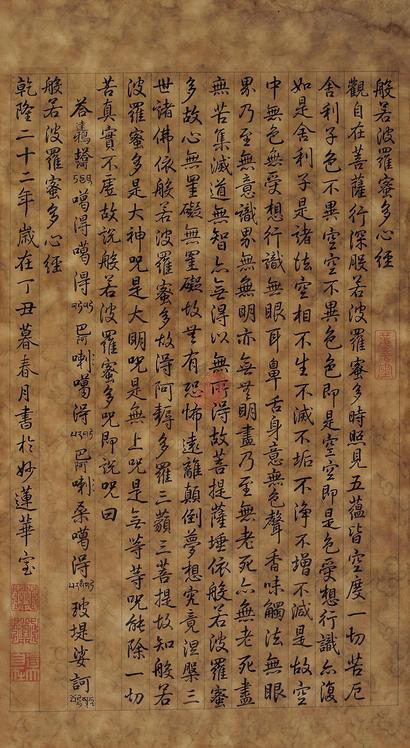 般若波羅蜜多心經
觀自在菩薩行深般若波羅蜜多時照見五蘊皆空度一切苦厄
舍利子色不異空空不異色色即是空空即是色受想行識亦復
如是舍利子是諸法空相不生不滅不垢不净不增不減是故空
中無色無受想行識無眼耳鼻舌身意無色聲香味觸法無眼
界乃至無意識界無無明亦無無明盡乃至無老死亦無老死盡
無苦集滅道無智亦無得以無所得故菩提薩埵依般若波羅蜜
多故心無罣礙無罣礙故無有恐怖遠離顛倒夢想究竟涅槃三
世諸佛依般若波羅蜜多故得阿耨多羅三藐三菩提故知般若
波羅蜜多是大神咒是大明咒是無上咒是無等等咒能除一切
苦真實不虛故說般若波羅蜜多咒即說咒曰
噶得噶得巴阿喇噶得巴阿喇桑噶得玻提娑訶
般若波羅蜜多心經
乾隆二十二年歲在丁丑暮春月書於妙蓮華室